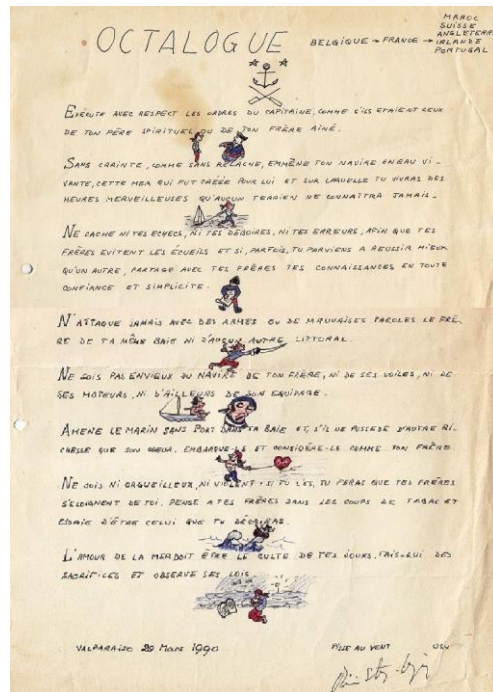 OCTALOGUE
BELGIQUE → FRANCE →
MAROC
SUISSE
ANGLETERRE
IRLANDE
PORTUGAL
EXÉCUTE AVEC RESPECT LES ORDRES DU CAPITAINE, COMME S'ILS ETAIENT CEUX
DE TON PÈRE SPIRITUEL OU DE TON FRÈRE AINÉ.
SANS CRAINTE, COMME SANS RELACHE, EMMÈNE TON NAVIRE EN EAU VI-
VANTE, CETTE MER QUI FUT CRÉÉE POUR LUI ET SUR LAQUELLE TU VIVRAS DES
HEURES MERVEILLEUSES QU'AUCUN TERRIEN NE CONNAÎTRA JAMAIS.
NE CACHE NI TES ECHECS, NI TES DÉBOIRES, NI TES ERREURS, AFIN QUE TES
FRÈRES EVITENT LES ÉCUEILS ET SI, PARFOIS, TU PARVIENS A REUSSIR MIEUX
QU'UN AUTRE, PARTAGE AVEC TES FRÈRES TES CONNAISSANCES EN TOUTE
CONFIANCE ET SIMPLICITE.
N'ATTAQUE JAMAIS AVEC DES ARMES OU DE MAUVAISES PAROLES LE FRÈ-
RE DE TA MÊME BAIE NI D'AUCUN AUTRE LITTORAL.
NE SOIS PAS ENVIEUX DU NAVIRE DE TON FRÈRE, NI DE SES VOILES, NI DE
SES MOTEURS, NI D'AILLEURS DE SON EQUIPAGE.
AMENE LE MARIN SANS PORT DANS TA BAIE ET, S'IL NE POSSEDE D'AUTRE RI-
CHESSE QUE SON COEUR, EMBARQUE-LE ET CONSIDÈRE-LE COMME TON FRÈRE.
NE SOIS NI ORGUEILLEUX, NI VIOLENT: SI TU L'ES, TU FERAS QUE TES FRÈRES
S'ELOIGNENT DE TOI. PENSE A TES FRÈRES DANS LES COUPS DE TABAC ET
ESSAIE D'ÊTRE CELUI QUE TU
L'AMOUR DE LA MER DOIT ÊTRE LE CULTE DE TES JOURS, FAIS-LUI DES
SACRIFICES ET OBSERVE SES LOIS.
VALPARAISO 29 MARS 1990
PISSE AU VENT